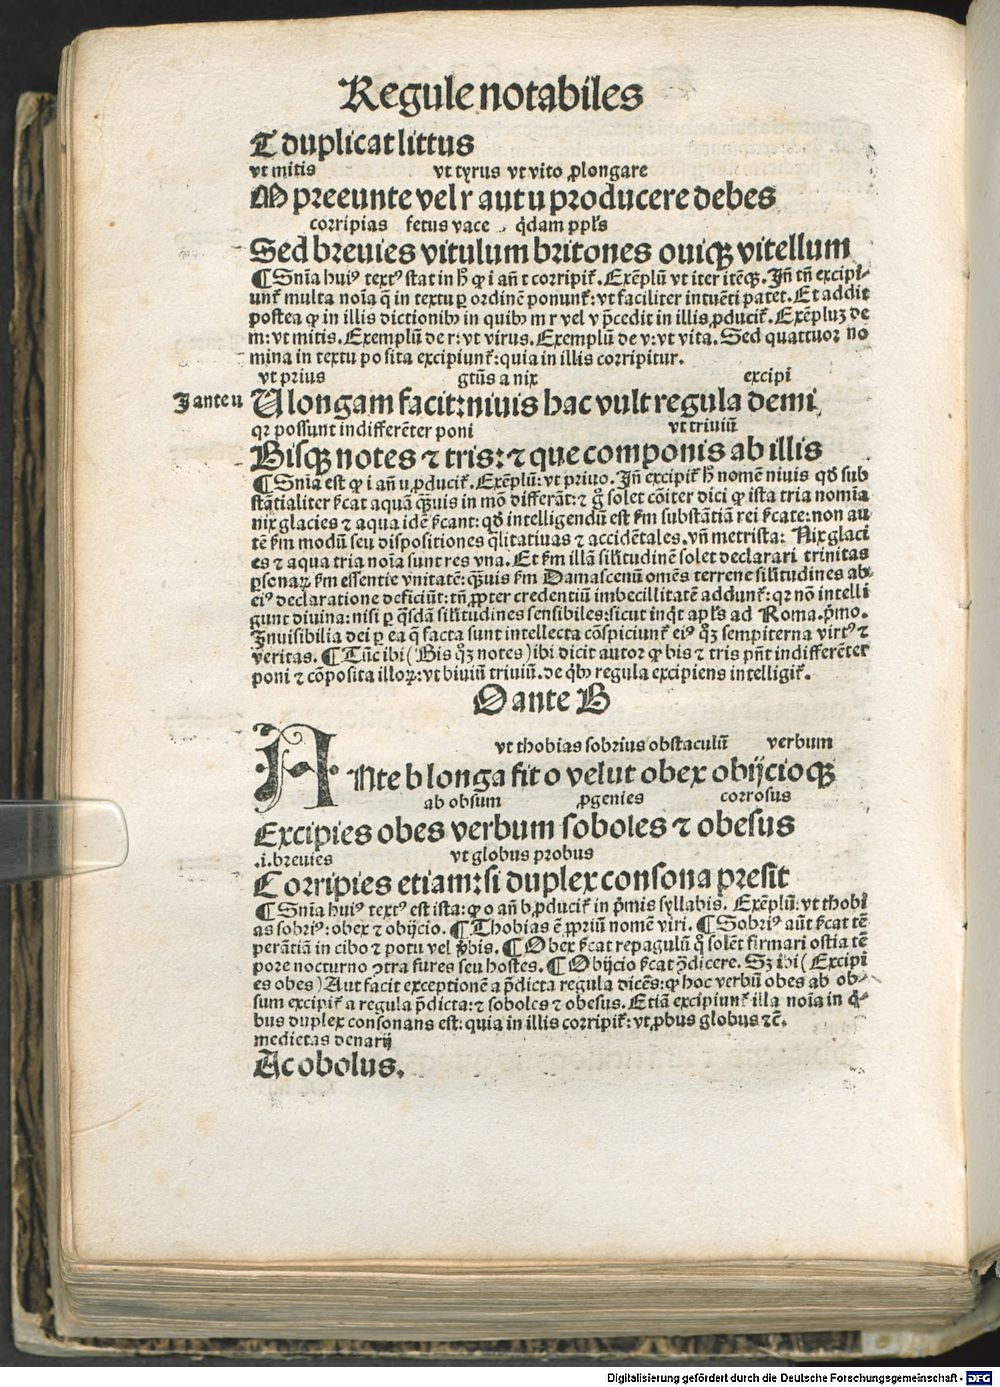 Regule notabiles
T duplicat littus
vt mitis vt tyrus vt vito ꝓlongare
M preeunte vel r aut u producere debes
corripias fetus vace q̇dam ppl̓s
Sed breuies vitulum britones ouiqꝫ vitellum
¶ Snīa huiꝰ textꝰ stat in ħ ꝙ i añ t corripit̉. Exēplū vt iter itēqꝫ. Jñ tñ excipi⸗
unt̉ multa noīa q̄ in textu ꝑ ordinē ponunt̉: vt faciliter intuēti patet. Et addit
postea ꝙ in illis dictionibꝫ in quibꝫ m r vel v p̄cedit in illis ꝓducit̉. Exēpluꝫ de
m: vt mitis. Exemplū de r: vt virus. Exemplū de v: vt vita. Sed quattuor no
mina in textu posita excipiunt̉: quia in illis corripitur.
vt prius gtūs a nix excipi
J ante u U longam facit: niuis hac vult regula demi
qꝛ possunt indifferēter poni vt triuiū
Bisqꝫ notes ⁊ tris: ⁊ que componis ab illis
¶ Snīa est ꝙ i añ u ꝓducit̉. Exēplū: vt priuo. Jñ excipit̉ ħ nomē niuis qđ sub
stātialiter s̉cat aquā qꝫuis in mō differāt: ⁊ g̊ solet cōiter dici ꝙ ista tria nomīa
nix glacies ⁊ aqua idē s̉cant: qđ intelligendū est s̉m substātiā rei s̉cate: non au
tē s̉m modū seu dispositiones q̄litatiuas ⁊ accidētales. vñ metrista: Nix glaci
es ⁊ aqua tria noīa sunt res vna. Et s̉m illā sil̓itudinē solet declarari trinitas
ꝑsonaꝝ s̉m essentie vnitatē: qꝫuis s̉m Damascenū omēs terrene sil̓itudines ab
eiꝰ declaratione deficiūt: tñ ꝓpter credentiū imbecillitatē addunt̉: qꝛ nō intelli
gunt diuina: nisi ꝑ q̄sdā sil̓itudines sensibiles: sicut inq̇t apl̓s ad Roma. p̄mo.
Jnuisibilia dei ꝑ ea q̄ facta sunt intellecta cōspiciunt̉ eiꝰ qꝫ sempiterna virtꝰ ⁊
veritas. ¶ Tūc ibi (Bis qꝫ notes) ibi dicit autor ꝙ bis ⁊ tris pñt indifferēter
poni ⁊ cōposita illoꝝ: vt biuiū triuiū. de qꝰbꝫ regula excipiens intelligit̉.
O ante B
vt thobias sobrius obstaculū verbum
ANte b longa fit o velut obex obijcioqꝫ
ab obsum ꝓgenies corrosus
Excipies obes verbum soboles ⁊ obesus
.i. breuies vt globus probus
Corripies etiam: si duplex consona presit
¶ Snīa huiꝰ textꝰ est ista: ꝙ o añ b ꝓducit̉ in p̄mis syllabis. Exēplū: vt thobi
as sobriꝰ: obex ⁊ obijcio. ¶ Thobias ē ꝓpriū nomē viri. ¶ Sobriꝰ aūt s̉cat tē
perātiā in cibo ⁊ potu vel ꝟbis. ¶ Obex s̉cat repagulū q̊ solēt firmari ostia tē
pore nocturno ꝯtra fures seu hostes. ¶ Obijcio s̉cat ꝯ̄dicere. Sꝫ ibi (Excipi
es obes) Aut facit exceptionē a p̄dicta regula dicēs: ꝙ hoc verbū obes ab ob⸗
sum excipit̉ a regula p̄dicta: ⁊ soboles ⁊ obesus. Etiā excipiunt̉ illa noīa in q̇⸗
bus duplex consonans est: quia in illis corripit̉: vt ꝓbus globus ⁊c̄.
medietas denarij
Ac obolus.
Digitalisierung gefördert durch die Deutsche Forschungsgemeinschaft - DFG